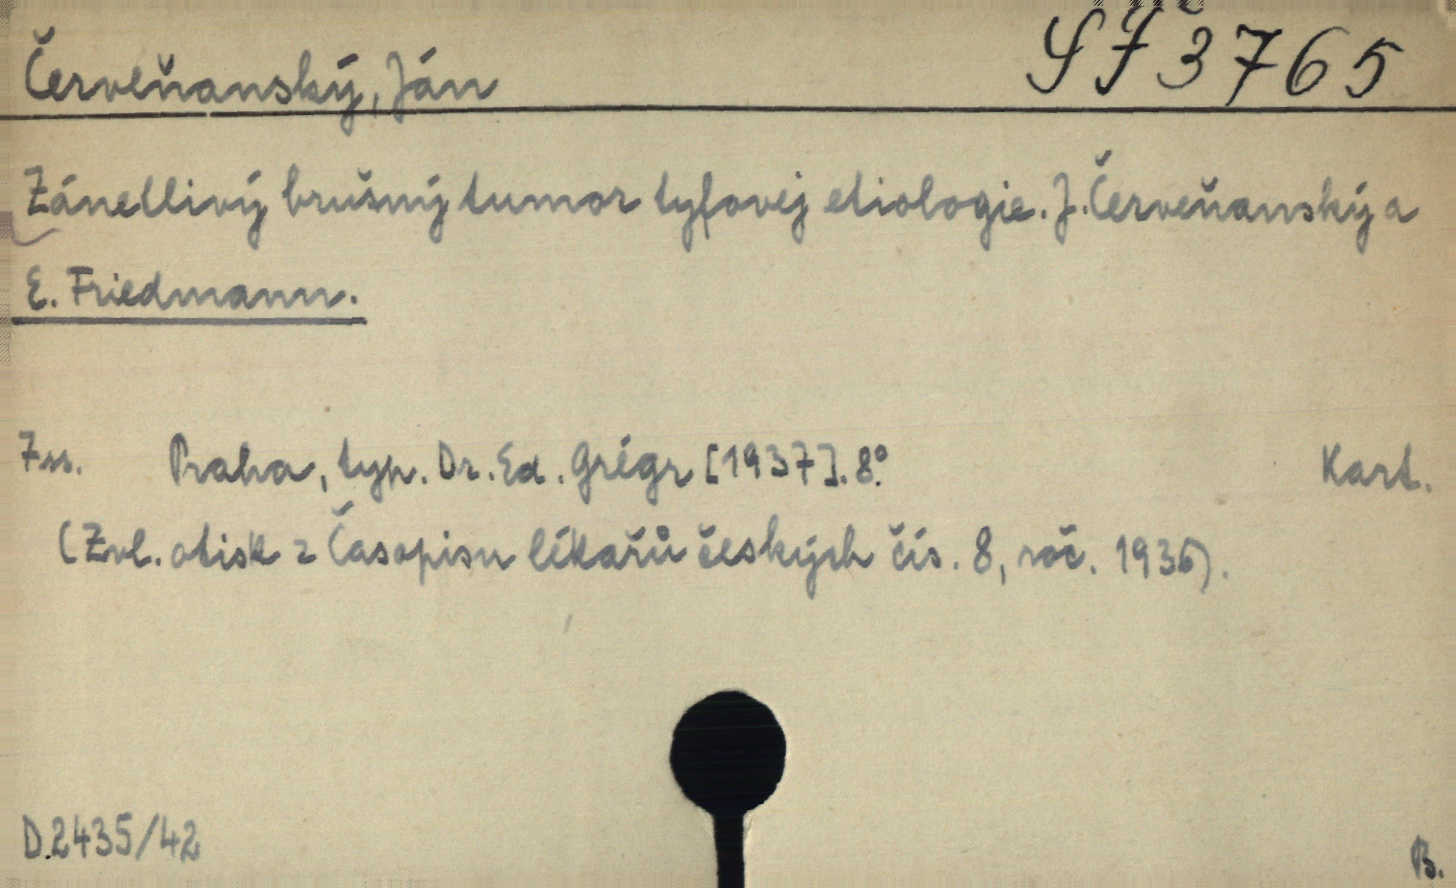 Červeňanský, Ján
SJ 3765
Zánetlivý brušný tumor tyfovej etiologie. J. Červeňanský a
E. Friedmann.
7 ss. Praha, typ. Dr. Ed. Grégr [1937]. 8°. Kart.
(Zvl. otisk z Časopisu lékařů českých čís. 8, roč. 1936).
D.2435/42
B.